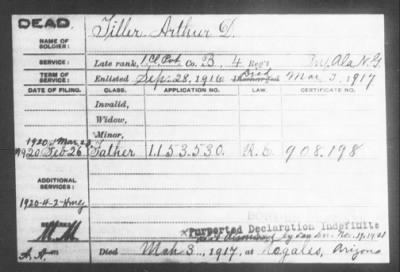 DEAD.
NAME OF SOLDIER: Tiller, Arthur D.
SERVICE: Late rank, 1 Cl Pvt Co. B, 4 Reg't Inf Ala N.G
TERM OF SERVICE: Enlisted Sep. 28, 1916 Died Mar 3, 1917
DATE OF FILING. CLASS. APPLICATION NO. LAW. CERTIFICATE NO.
Invalid,
Widow,
Minor,
1920 Mar 23
1920 Feb 26 Father 1.153.530. R.E. 908.198
ADDITIONAL SERVICES:
1920-4-2-
REMARKS:
Purported Declaration Indefinite
Nov. 19, 1921
M.M.
A.A. Died Mch 3, 1917, at Nogales, Arizona